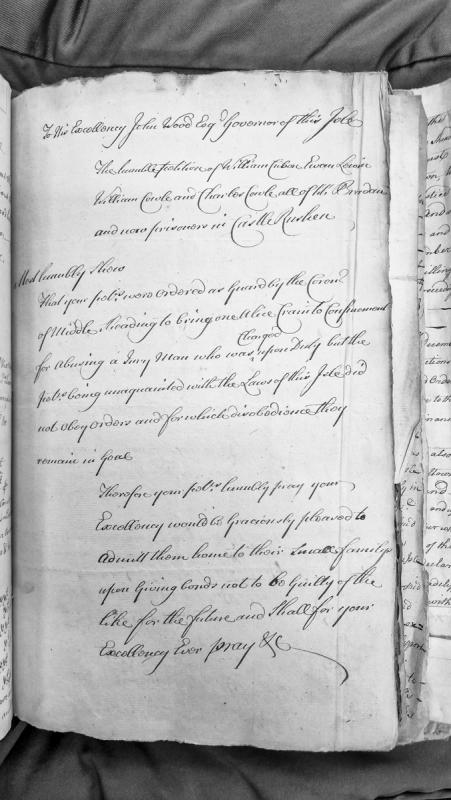 To His Excellency John Wood Esqr. Governor of this Isle
The humble Petition of William Cubon Ewan
William Cowle and Charles Cowle all of KK Braddan
and now prisoners in Castle Rushen
Most humbly Shew
That your petrs. were ordered as Guard by the Coronr.
of Middle Sheading to bring one Alice Crain to Confinement
for Abusing a Jury Man who was Charged upon Duty but the
petrs. being unaquainted with the Laws of this Isle did
not obey orders and for which disobedience they
remain in Goal
Therefore your petrs. humbly pray your
Excellency would be Graciously pleased to
Admitt them home to their Small familys
upon Giving bonds not to be Guilty of the
like for the future and Shall for your
Excellency Ever pray &c